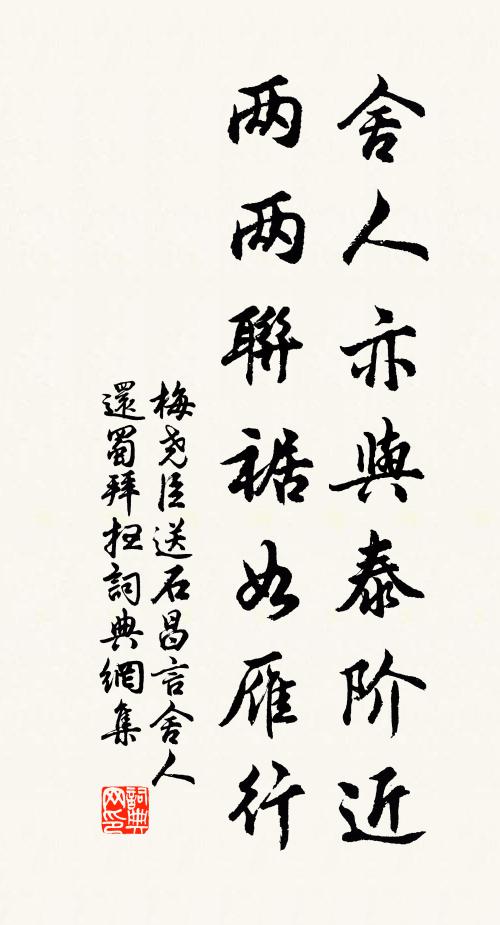 舍人亦與泰阶近
两两聯裾如雁行
梅尧臣送石昌言舍人
還蜀拜扫詞典網集
詞典
网印